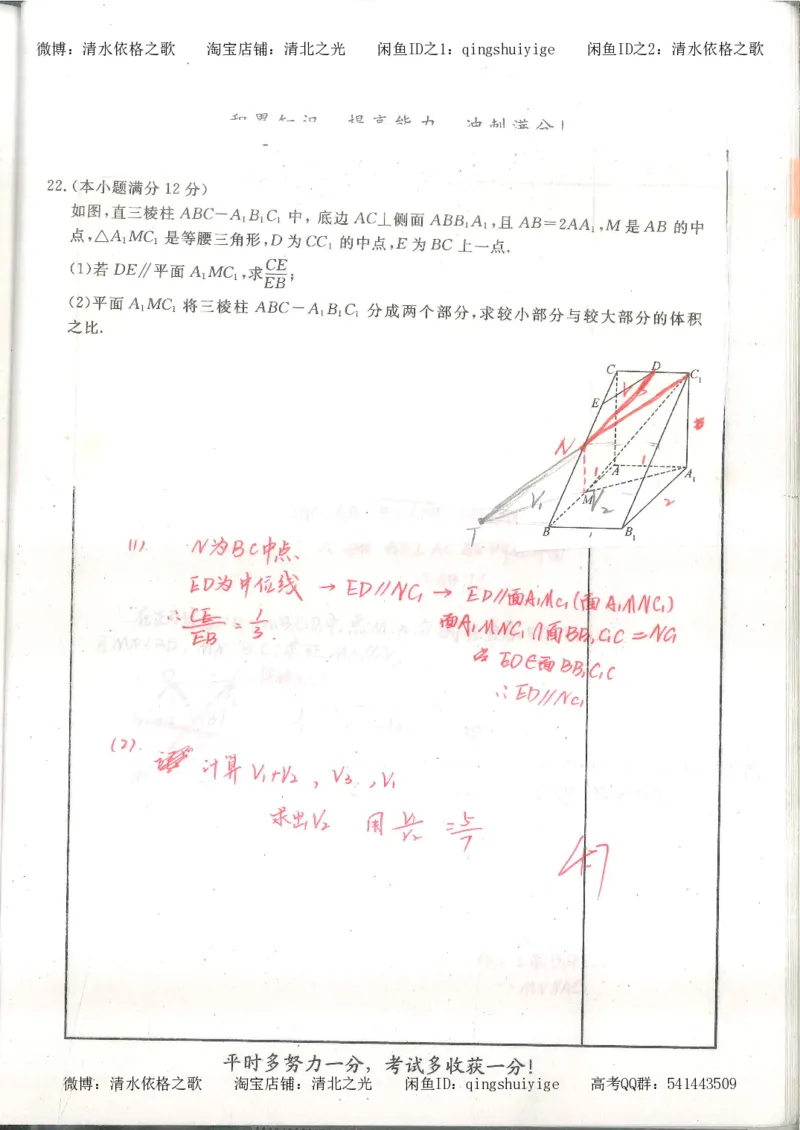 微博：清水依格之歌 淘宝店铺：清北之光 闲鱼ID之1：qingshuiyige 闲鱼ID之2：清水依格之歌
积累知识 提高能力 冲刺满分！
22.(本小题满分12分)
如图,直三棱柱 ABC－A₁B₁C₁ 中, 底边 AC⊥侧面 ABB₁A₁,且 AB＝2AA₁,M 是 AB 的中
点,△A₁MC₁ 是等腰三角形,D 为 CC₁ 的中点,E 为 BC 上一点.
(1)若 DE∥平面 A₁MC₁,求CE/EB;
(2)平面 A₁MC₁ 将三棱柱 ABC－A₁B₁C₁ 分成两个部分,求较小部分与较大部分的体积
之比.
C D C₁
E
N
A A₁
M
V₁ V₂ 2
T B B₁
(1). N为BC中点、
ED为中位线 → ED∥NC₁ → ED∥面A₁MC₁(面A₁MNC₁)
∴ CE/EB = 1/3. 面A₁MNC₁∩面BB₁C₁C＝NC₁
ED∈面BB₁C₁C
∴ED∥NC₁
(2).
计算V₁+V₂ , V₃ ,V₁
求出V₂ 用 V₁/V₂ = 5/7
平时多努力一分，考试多收获一分！
微博：清水依格之歌 淘宝店铺：清北之光 闲鱼ID：qingshuiyige 高考QQ群：541443509